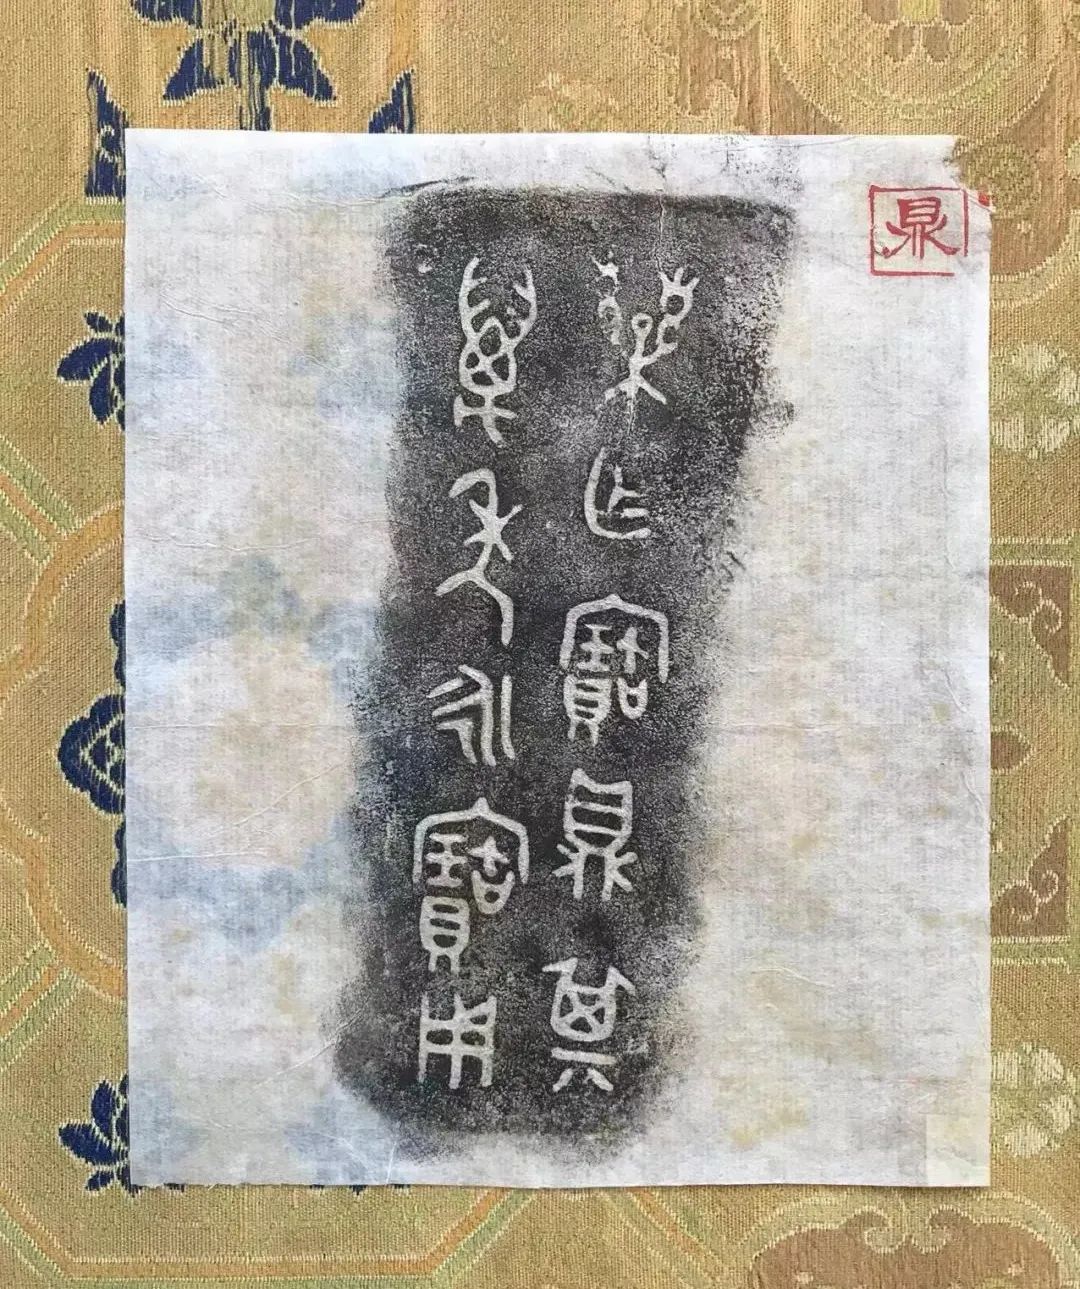 鼎
乍寶鼎其
萬年永寶用